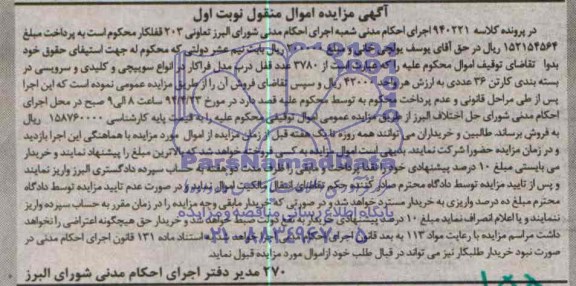 آگهی مزایده اموال منقول نوبت اول
در پرونده کلاسه ۹۴۰۲۲۱ اجرای احکام مدنی شعبه اجرای احکام مدنی شورای البرز تعاونی ۲۰۳ قفلکار محکوم است به پرداخت مبلغ
۱۵۲۱۵۴۵۶۴ ریال در حق آقای یوسف و مبلغ ریال بابت نیم عشر دولتی که محکوم له جهت استیفای حقوق خود
بدوا تقاضای توقیف اموال محکوم علیه را که عبارت است از ۳۷۸۰ عدد قفل درب مدل فراکار در انواع سوییچی و کلیدی و سرویسی در
بسته بندی کارتن ۳۶ عددی به ارزش هر واحد ۴۲۰۰۰ ریال و سپس تقاضای فروش آن را از طریق مزایده عمومی نموده است که این اجرا
پس از طی مراحل قانونی و عدم پرداخت محکوم به توسط محکوم علیه قصد دارد در مورخ ساعت ۸ الی ۹ صبح در محل اجرای
احکام مدنی شورای حل اختلاف البرز از طریق مزایده عمومی اموال توقیفی محکوم علیه را به قیمت پایه کارشناسی ۱۵۸۷۶۰۰۰۰ ریال
به فروش برساند. طالبین و خریداران می توانند همه روزه تا یک هفته قبل از زمان مزایده از اموال مورد مزایده با هماهنگی این اجرا بازدید
و در زمان مزایده حضورا شرکت نمایند. بدیهی است اموال مزایده به کسی فروخته خواهد شد که بالاترین مبلغ را پیشنهاد نمایند و خریدار
می بایستی مبلغ ۱۰ درصد پیشنهادی خود را نقدا پرداخت و مابقی را مدت به حساب سپرده دادگستری البرز واریز نمایند
و پس از تایید مزایده توسط دادگاه محترم صادر کننده حکم تقاضای انتقال مالکیت اموال نماید و در صورت عدم تایید مزایده توسط دادگاه
محترم مبلغ ده درصد واریزی به خریدار مسترد خواهد شد و در صورتی که خریدار مابقی وجه مزایده را در زمان مقرر به حساب سپرده واریز
ننمایند و یا اعلام انصراف نماید مبلغ ۱۰ درصد پیشنهادی خریدار به نفع دولت ضبط خواهد شد و خریدار حق هیچگونه اعتراضی را نخواهد
داشت مراسم مزایده با رعایت مواد ۱۱۳ به بعد قانون اجرای احکام مدنی اجرا خواهد شد به استناد ماده ۱۳۱ قانون اجرای احکام مدنی در
صورت نبود خریدار طلبکار نیز می تواند در قبال طلب خود از اموال مورد مزایده قبول نماید.
۲۷۰ مدیر دفتر اجرای احکام مدنی شورای البرز
ParsNamadData
پایگاه اطلاع رسانی مناقصه و مزایده
۰۲۱-۸۸۳۴۹۶۷۰-۵